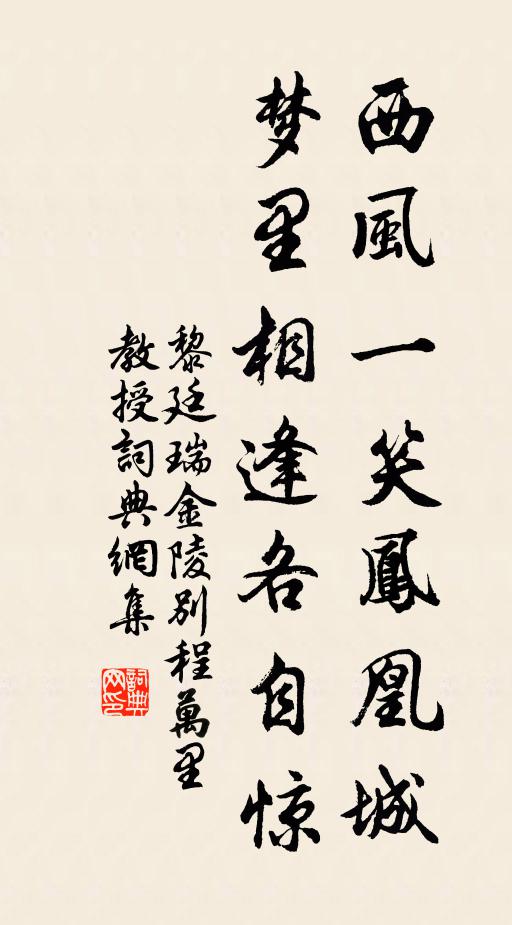 西風一笑鳳凰城
梦里相逢各自惊
黎廷瑞金陵別程萬里
教授詞典網集
詞典网印